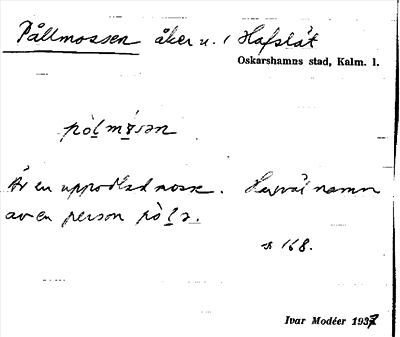 Pållmossen åker u. / Hafslät
Oskarshamns stad, Kalm. l.
pòlmósən
Är en uppodlad mosse. namn
av en person pòlə.
s 168.
Ivar Modéer 1937